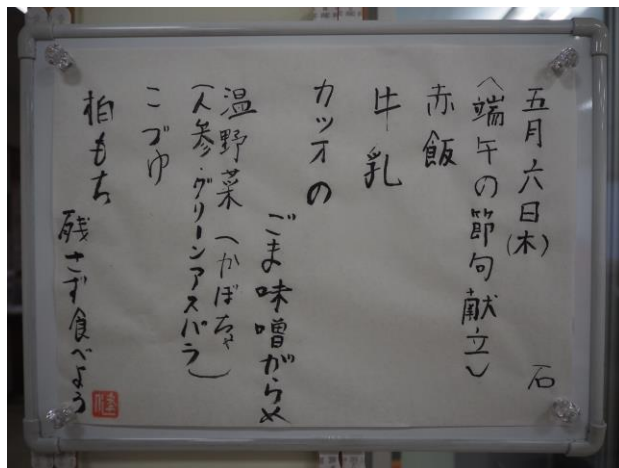 五月六日(木)
石
(端午の節句献立)
赤飯
牛乳
カツオの
ごま味噌がらめ
温野菜(かぼちゃ
(人参・グリーンアスパラ)
こづゆ
柏もち
残さず食べよう